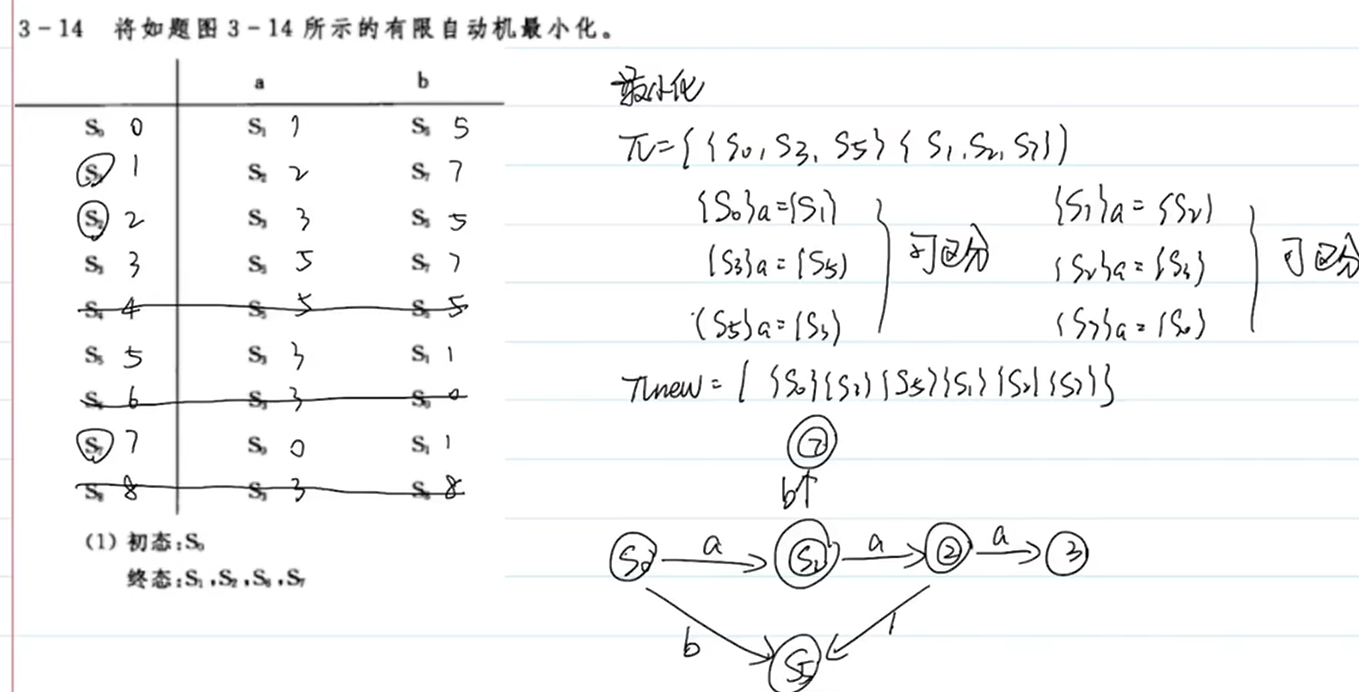 3-14 将如题图 3-14 所示的有限自动机最小化。
a b
S₀ 0 S₁ 1 S₅ 5
1 S₂ 2 S₇ 7
S₂ 2 S₃ 3 S₅ 5
S₃ 3 S₅ 5 S₇ 7
S₄ 4 S₅ 5 5
S₅ 5 S₃ 3 S₁ 1
6 3 S₀ 0
S₇ 7 S₀ 0 S₁ 1
S₈ 8 S₃ 3 8
(1) 初态:S₀
终态:S₁,S₂,S₆,S₇
最小化
π={{S₀,S₃,S₅}{S₁,S₂,S₇}}
{S₀}a={S₁}
{S₃}a={S₅}
{S₅}a={S₃}
可区分
{S₁}a={S₂}
{S₂}a={S₃}
{S₇}a={S₀}
可区分
πnew={{S₀}{S₃}{S₅}{S₁}{S₂}{S₇}}
7
b
S₀ a S₁ a 2 a 3
b
S₅